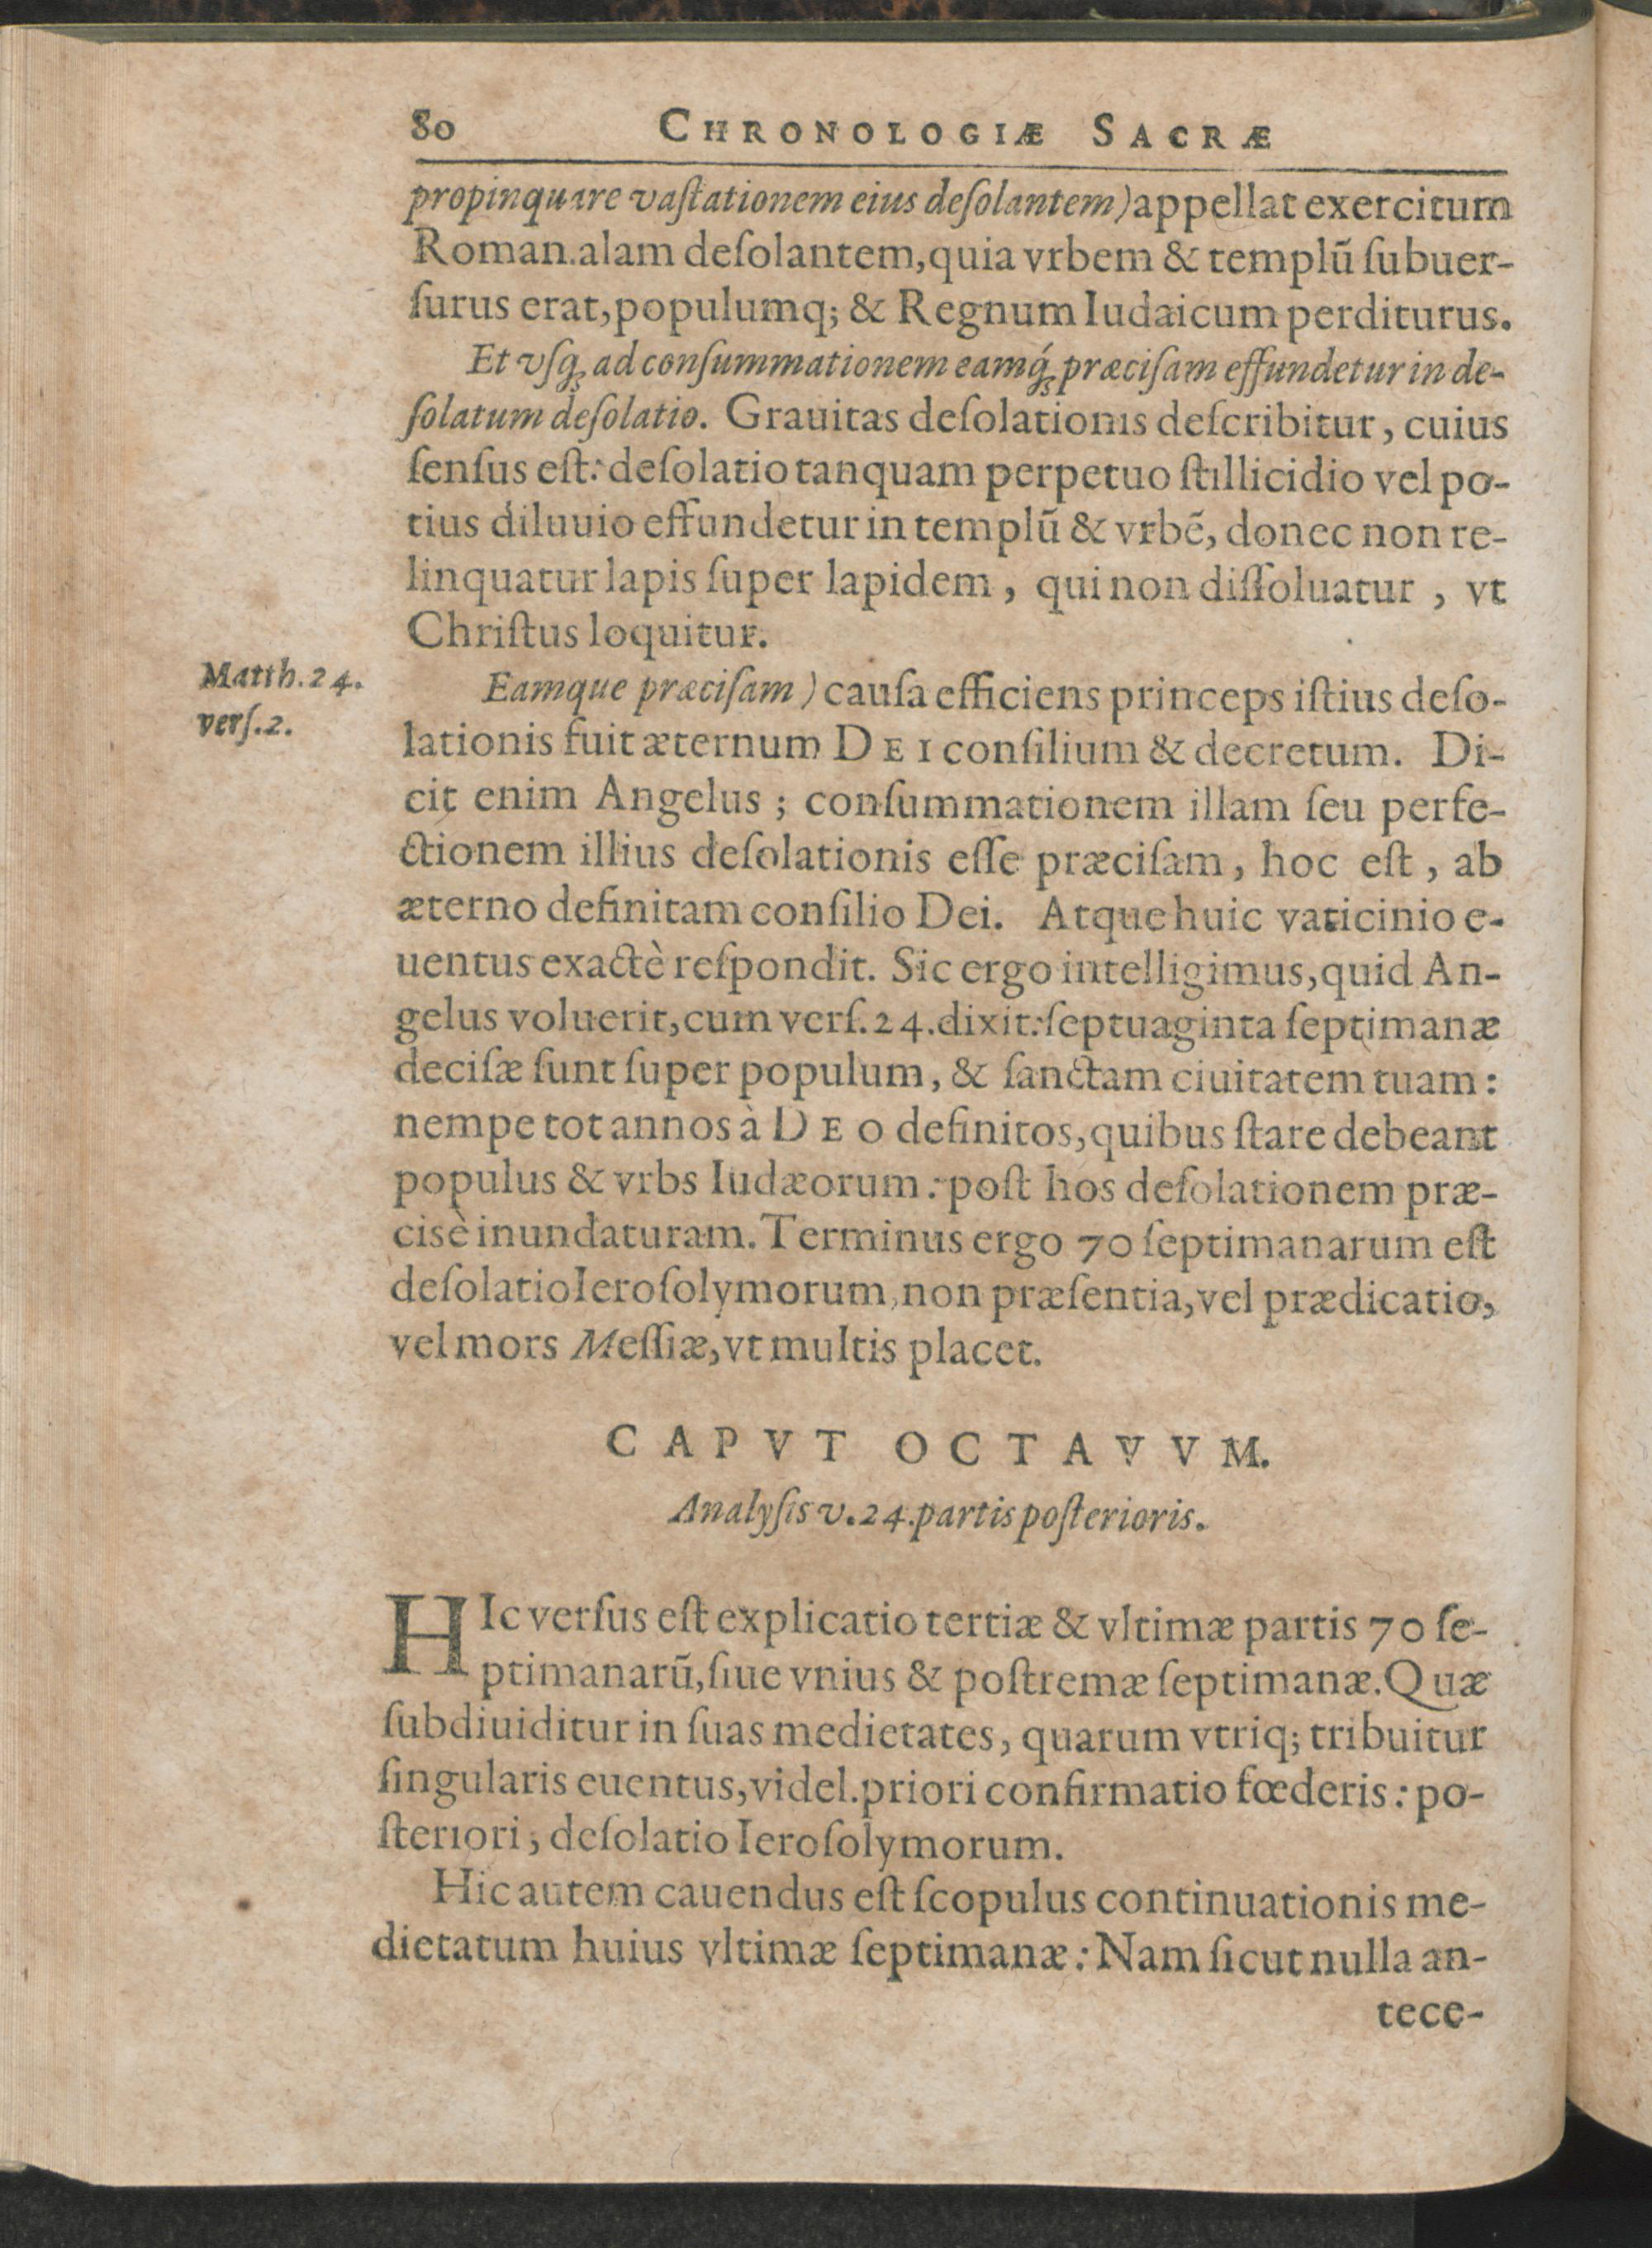 80 CHRONOLOGIÆ SACRÆ
propinquare vaſtationem eius deſolantem) appellat exercitum
Roman. alam deſolantem, quia vrbem & templū ſubuer-
ſurus erat, populumq; & Regnum Iudaicum perditurus.
Et vſq; ad conſummationem eamq́; præciſam effundetur in de-
ſolatum deſolatio. Grauitas deſolationis deſcribitur, cuius
ſenſus eſt: deſolatio tanquam perpetuo ſtillicidio vel po-
tius diluuio effundetur in templū & vrbē, donec non re-
linquatur lapis ſuper lapidem, qui non diſſoluatur, vt
Chriſtus loquitur.
Matth. 24.
verſ. 2.
Eamque præciſam) cauſa efficiens princeps iſtius deſo-
lationis fuit æternum DEI conſilium & decretum. Di-
cit enim Angelus; conſummationem illam ſeu perfe-
ctionem illius deſolationis eſſe præciſam, hoc eſt, ab
æterno definitam conſilio Dei. Atque huic vaticinio e-
uentus exactè reſpondit. Sic ergo intelligimus, quid An-
gelus voluerit, cum verſ. 24. dixit: ſeptuaginta ſeptimanæ
deciſæ ſunt ſuper populum, & ſanctam ciuitatem tuam:
nempe tot annos à DEO definitos, quibus ſtare debeant
populus & vrbs Iudæorum: poſt hos deſolationem præ-
cisè inundaturam. Terminus ergo 70 ſeptimanarum eſt
deſolatio Ieroſolymorum, non præſentia, vel prædicatio,
vel mors Meſſiæ, vt multis placet.
CAPVT OCTAVVM.
Analyſis v. 24. partis poſterioris.
HIc verſus eſt explicatio tertiæ & vltimæ partis 70 ſe-
ptimanarū, ſiue vnius & poſtremæ ſeptimanæ. Quæ
ſubdiuiditur in ſuas medietates, quarum vtriq; tribuitur
ſingularis euentus, videl. priori confirmatio fœderis: po-
ſteriori, deſolatio Ieroſolymorum.
Hic autem cauendus eſt ſcopulus continuationis me-
dietatum huius vltimæ ſeptimanæ: Nam ſicut nulla an-
tece-